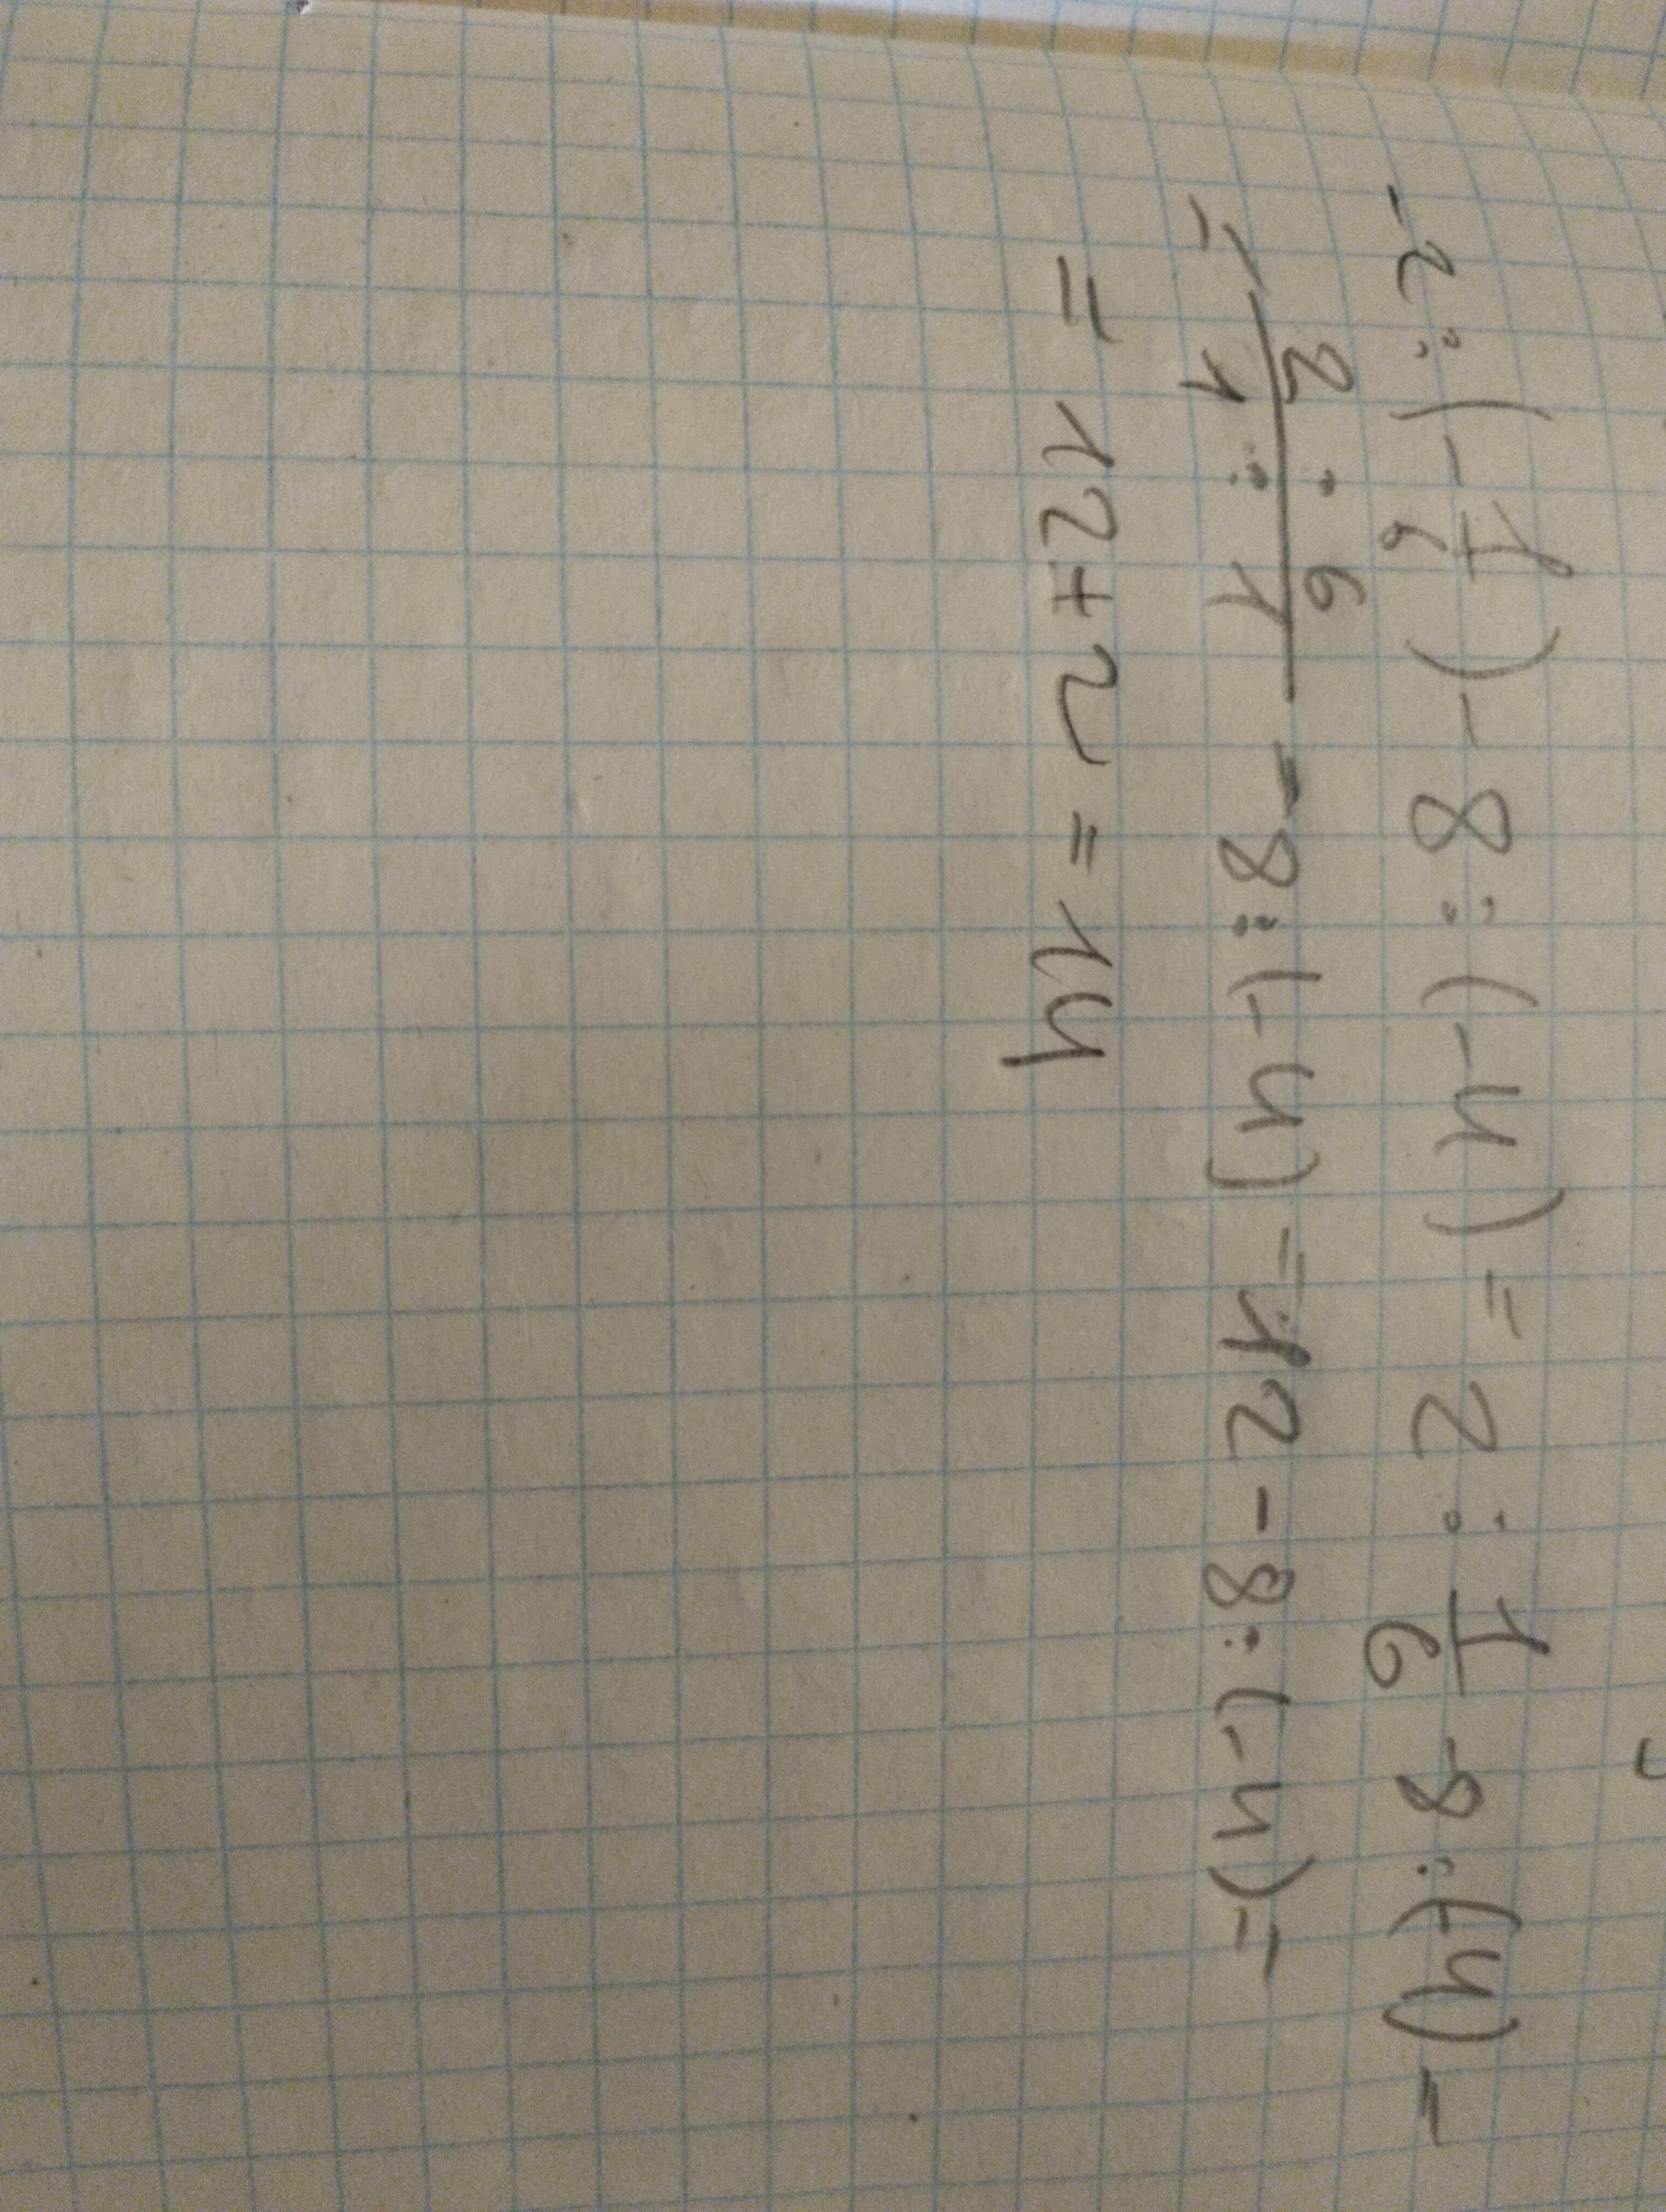 -2 : (-1/6) - 8 : (-4) = 2 : 1/6 - 8 : (-4) =
= (2 · 6)/(1 : 1) - 8 : (-4) = 12 - 8 : (-4) =
= 12 + 2 = 14